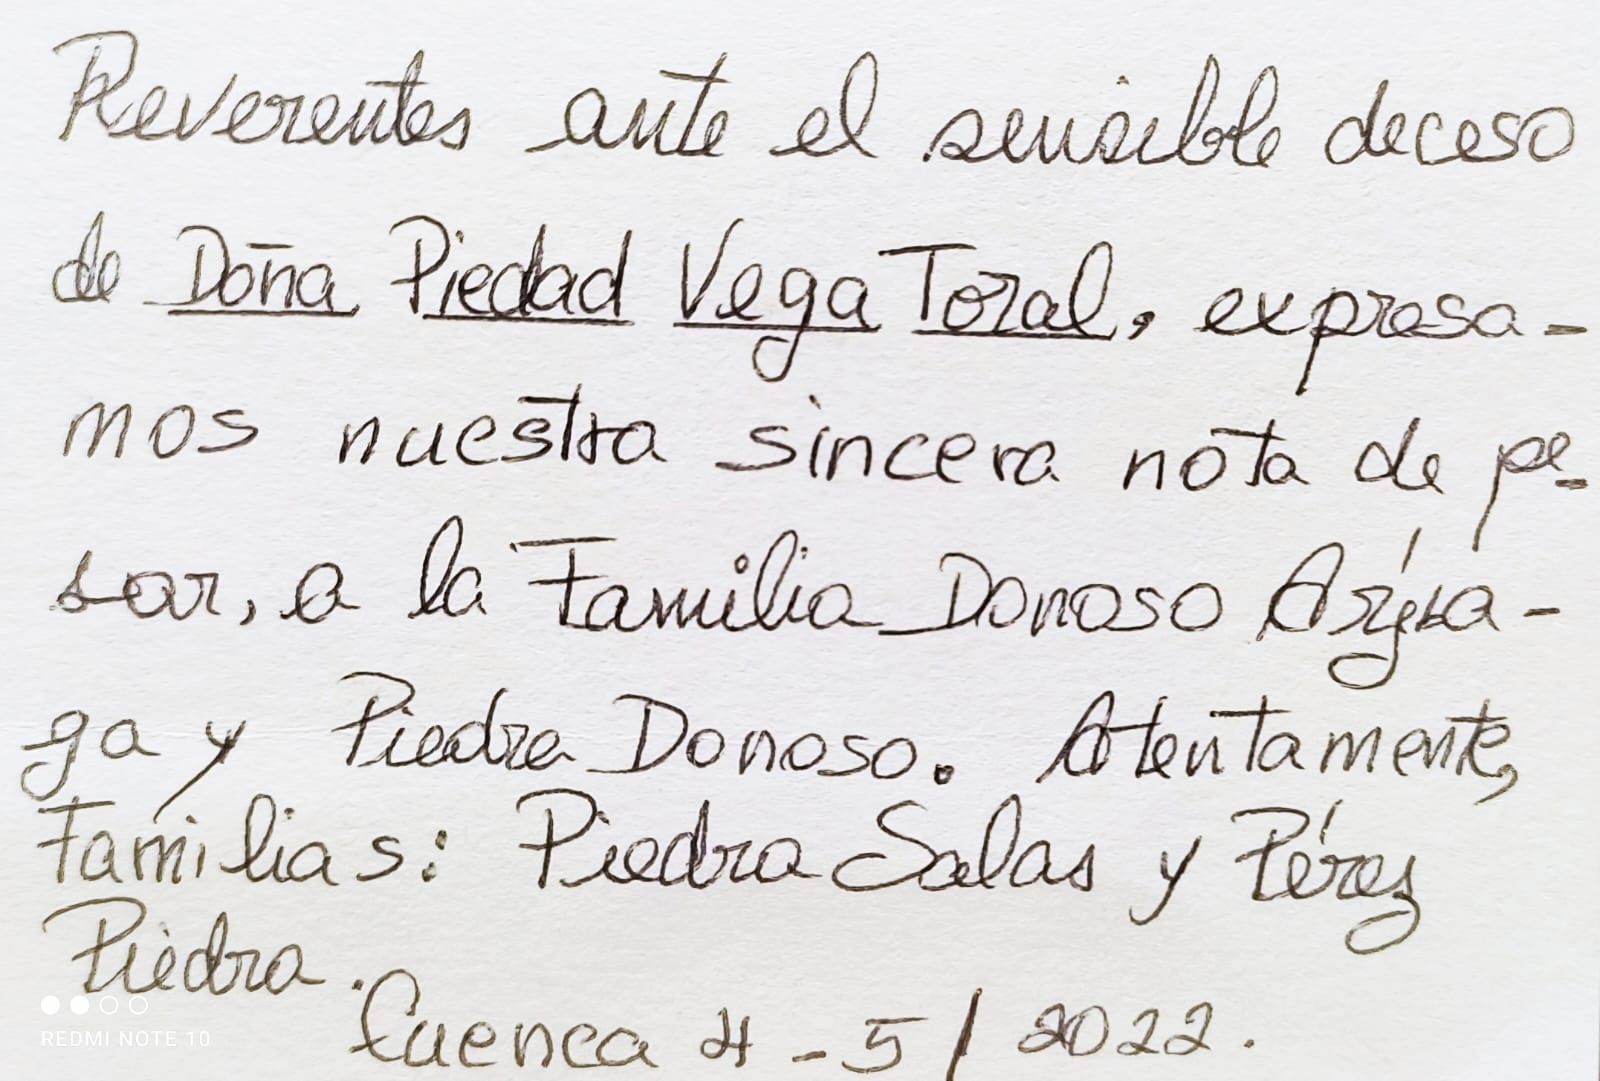 Reverentes ante el sensible deceso
de Doña Piedad Vega Toral, expresa-
mos nuestra sincera nota de pe-
sar, a la Familia Donoso Aríza-
ga y Piedra Donoso. Atentamente,
Familias: Piedra Salas y Pérez
Piedra.
Cuenca 4-5/2022.
REDMI NOTE 10